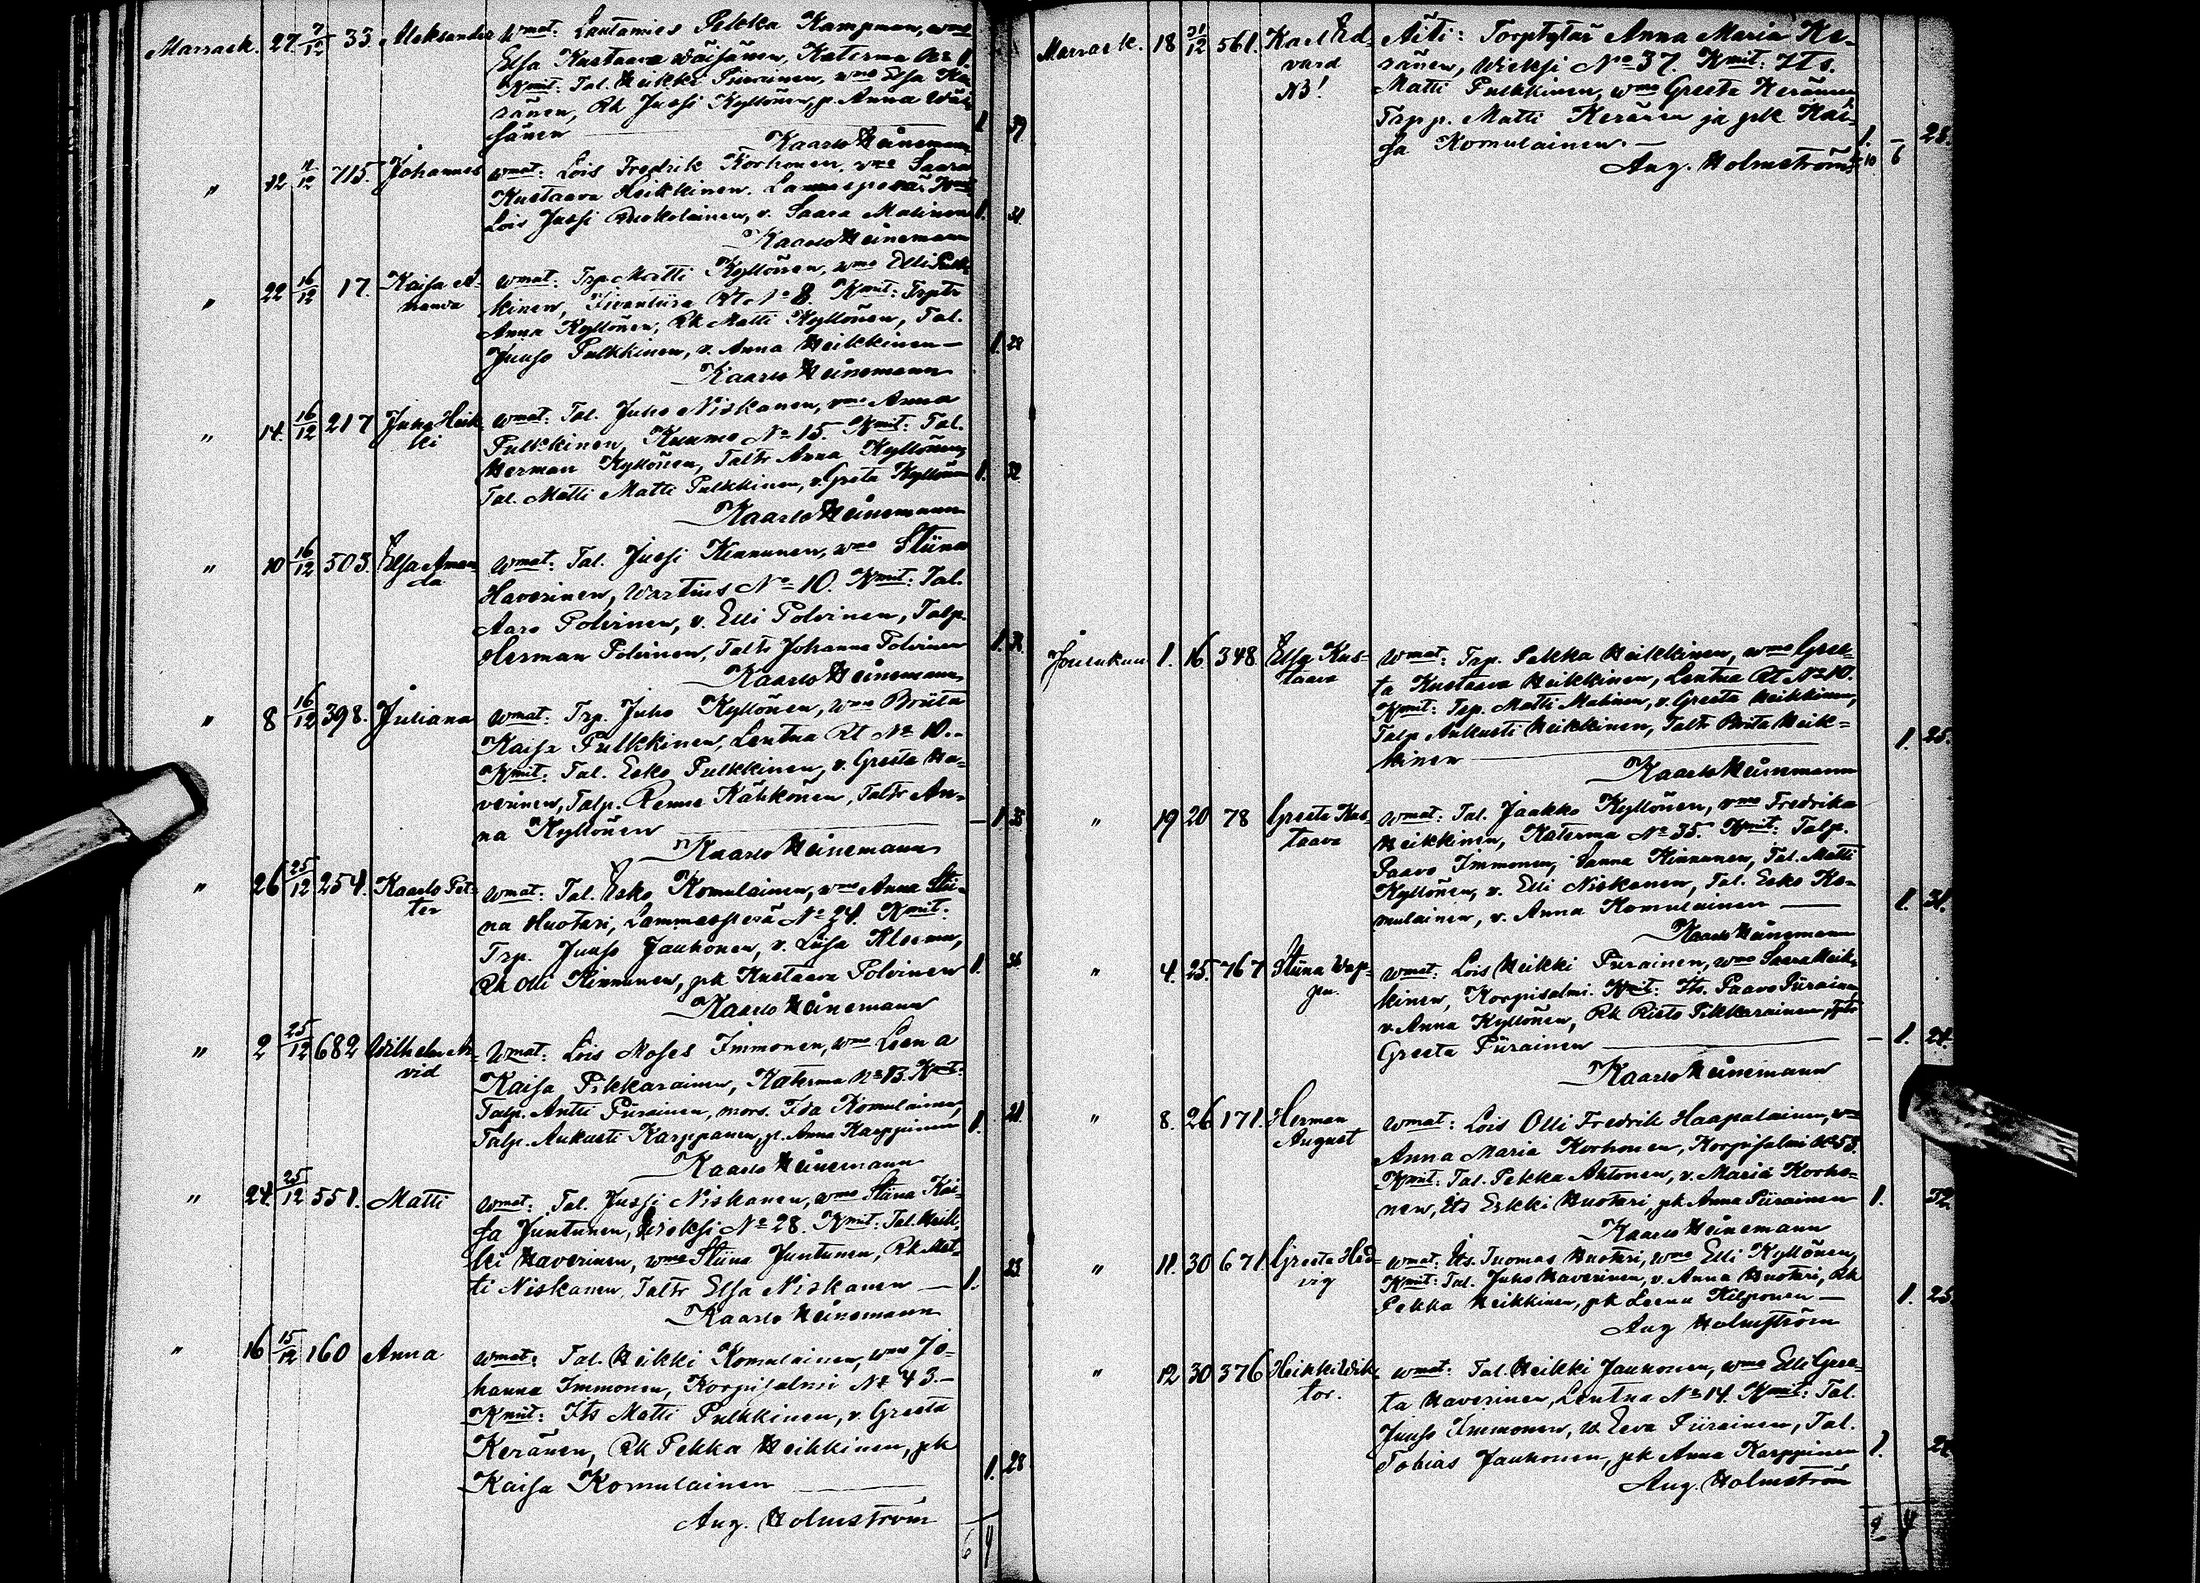 Marrask. 27 7/12 33. Aleksander Wmat: Lautamies Pekka Kampman, wmo
Elsa Kustaava Väisänen, Katerma No 1.
Kmit: Tal. Heikki Piirainen, wmo Elsa Ke-
ränen, Rk Jussi Kyllönen, p. Anna Väi-
sänen 1. 39
Kaarlo Heinemann
" 12 11/12 715. Johannes Wmat: Lois Fredrik Korhonen, vmo Saara
Kustaava Heikkinen. Lammasperä. Kmit:
Lois Jussi Ruokolainen, v. Saara Malinen 1. 31.
Kaarlo Heinemann
" 22 16/12 17. Kaisa A-
manda
Wmat: Trp Matti Kyllönen, wmo Elli Pulk-
kinen, Iivantiira Rt No 8. Kmit: Trptr
Anna Kyllönen, Rk Matti Kyllönen, Tal.
Juuso Pulkkinen, v. Anna Heikkinen — 1. 28
Kaarlo Heinemann
" 14. 16/12 217 Juho Heik-
ki
Wmat: Tal. Juho Niskanen, vmo Anna
Pulkkinen, Kuumo No 15. Kmit: Tal.
Herman Kyllönen, Taltr Anna Kyllönen,
Tal. Matti Matti Pulkkinen, v. Greta Kyllönen 1. 32
Kaarlo Heinemann
" 10 16/12 503. Elsa Aman-
da
Wmat: Tal. Jussi Kinnunen, wmo Stiina
Haverinen, Wartius No 10. Kmit: Tal.
Aaro Polvinen, v. Elli Polvinen, Talp.
Herman Polvinen, Taltr Johanna Polvinen 1.
Kaarlo Heinemann
" 8 16/12 398. Juliana Wmat: Trp. Juho Kyllönen, wmo Briita
Kaisa Pulkkinen, Lentua Rt No 10.
Kmit: Tal. Esko Pulkkinen, v. Greeta Ha-
verinen, Talp. Renne Kähkönen, Taltr An-
na Kyllönen — 1
Kaarlo Heinemann
" 26 25/12 254. Kaarlo Pet-
ter
Wmat: Tal. Esko Komulainen, wmo Anna Stii-
na Huotari, Lammasperä No 24. Kmit:
Trp. Juuso Jauhonen, v. Liisa Kleemo,
Rk Olli Kinnunen, pk Kustaava Polvinen 1. 36
Kaarlo Heinemann
" 2 25/12 682 Wilhelm Ar-
vid
Wmat: Lois Moses Immonen, wmo Leena
Kaisa Pikkarainen, Katerma No 13. Kmit:
Talp. Antti Piirainen, mors. Ida Komulainen,
Talp. Aukusti Karppanen, p. Anna Karppinen 1. 21
Kaarlo Heinemann
" 24. 25/12 551. Matti Wmat: Tal. Jussi Niskanen, wmo Stiina Kai-
sa Juntunen, Wieksi No 28. Kmit: Tal. Heik-
ki Haverinen, wmo Stiina Juntunen, Rk Mat-
ti Niskanen, Taltr Elsa Niskanen — 1. 23.
Kaarlo Heinemann
" 16 15/12 160 Anna Wmat: Tal. Heikki Komulainen, wmo Jo-
hanna Immonen, Korpisalmi No 43.—
Kmit: Its Matti Pulkkinen, v. Greeta
Keränen, Rk Pekka Heikkinen, pk
Kaisa Komulainen 1. 28
Aug. Holmström
6 4
Marrask. 18 31/12 561. Karl Ed-
vard
NB!
Äiti: Torptytär Anna Maria Ke-
ränen, Wieksi No 37. Kmit: Its.
Matti Pulkkinen, wmo Greeta Keränen,
Trp p. Matti Keränen ja pk Kai-
sa Komulainen. — 1. — 28.
Aug. Holmström 10 6
Joulukuu 1. 16 348. Elsa Kus-
taava
Wmat: Trp. Pekka Heikkinen, wmo Gree-
ta Kustaava Heikkinen, Lentua Rt No 10.
Kmit: Trp. Matti Malinen, v. Greeta Heikkinen,
Talp. Aukusti Heikkinen, Taltr Briita Heik-
kinen 1. 25.
Kaarlo Heinemann
" 19 20 78 Greeta Kus-
taava
Wmat: Tal. Jaakko Kyllönen, vmo Fredrika
Heikkinen, Katerma No 35. Kmit: Talp.
Paavo Immonen, Sanna Kinnunen, Tal. Matti
Kyllönen, v. Elli Niskanen, Tal. Esko Ko-
mulainen, v. Anna Komulainen — 1. 31.
Kaarlo Heinemann
" 4. 25. 767 Stiina Wap-
pu.
Wmat: Lois Heikki Piirainen, wmo Saara Heik-
kinen, Korpisalmi. Kmit: Its. Paavo Piirainen,
v. Anna Kyllönen, Rk Risto Pikkarainen,
Greeta Piirainen — 1. 24.
Kaarlo Heinemann
" 8. 26 171. Herman
August
Wmat: Lois Olli Fredrik Haapalainen, vmo
Anna Maria Korhonen, Korpisalmi No 53.
Kmit: Tal. Pekka Ahtonen, v. Maria Korho-
nen, Its Erkki Huotari, pk Anna Piirainen 1. 32.
Kaarlo Heinemann
" 11. 30 671. Greeta Hed-
vig
Wmat: Its. Tuomas Huotari, wmo Elli Kyllönen,
Kmit: Tal. Juho Haverinen, v. Anna Huotari, Rk
Pekka Heikkinen, pk Leena Kilponen — 1. 25.
Aug Holmström
" 12 30 376 Heikki Wik-
tor.
Wmat: Tal. Heikki Jauhonen, wmo Elli Gree-
ta Haverinen, Lentua No 14. Kmit: Tal.
Juuso Immonen, w. Eeva Piirainen, Tal.
Tobias Jauhonen, pk Anna Karppinen 1.
Aug. Holmström
2 4